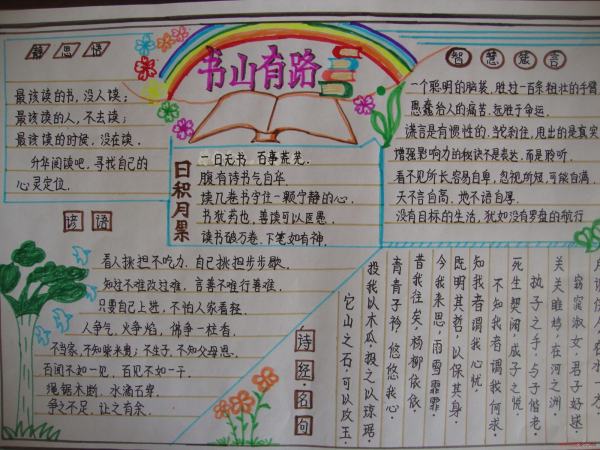 书山有路
静思语
最该读的书，没人读；
最该读的人，不去读；
最该读的时候，没在读。
升华阅读吧，寻找自己的
心灵定位。
日积月累
一日无书 百事荒芜.
腹有诗书气自华
读几卷书守住一颗宁静的心.
书犹药也，善读可以医愚
读书破万卷.下笔如有神.
智慧箴言
一个聪明的脑袋，胜过一百条粗壮的手臂
愚蠢给人的痛苦.远胜于命运.
谎言是有惯性的.当你刹住，甩出的是真实
增强影响力的秘诀不是表达，而是聆听.
看不见所长，容易自卑，忽视所短，可能自满.
天不言自高，地不语自厚.
没有目标的生活，犹如没有罗盘的航行
谚语
看人挑担不吃力，自己挑担步步歇.
知过不难改过难，言善不难行善难.
只要自己上进，不怕人家看轻.
人争气，火争焰，佛争一柱香.
不当家，不知柴米贵；不生子，不知父母恩.
百闻不如一见，百见不如一干
绳锯木断，水滴石穿.
争之不足，让之有余.
诗经·名句
窈窕淑女，君子好逑
关关雎鸠，在河之洲
执子之手，与子偕老
死生契阔，成子之悦
不知我者谓我何求.
知我者谓我心忧
既明其哲，以保其身
今我来思，雨雪霏霏
昔我往矣，杨柳依依.
青青子衿，悠悠我心
投我以木瓜，投之以琼琚.
它山之石，可以攻玉